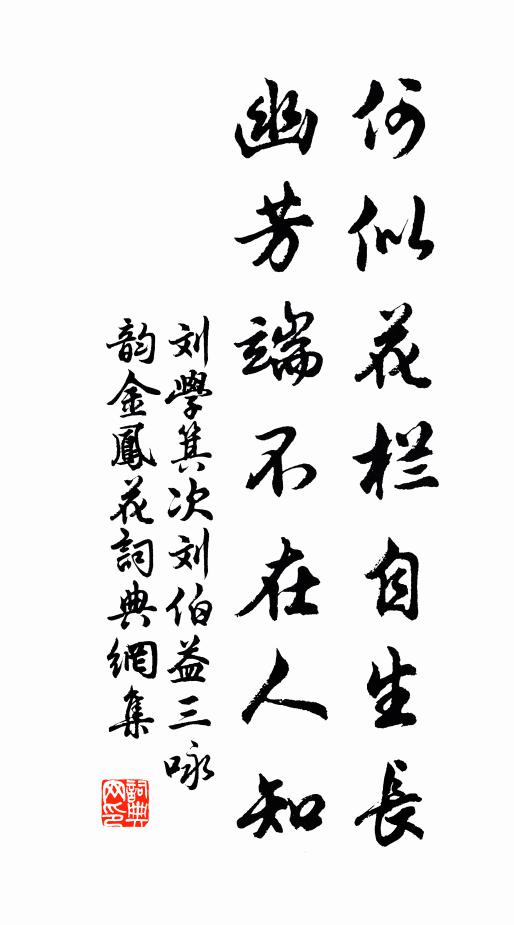 何似花栏自生長
幽芳端不在人知
刘學箕次刘伯益三咏
韵金鳳花詞典網集
詞典网印